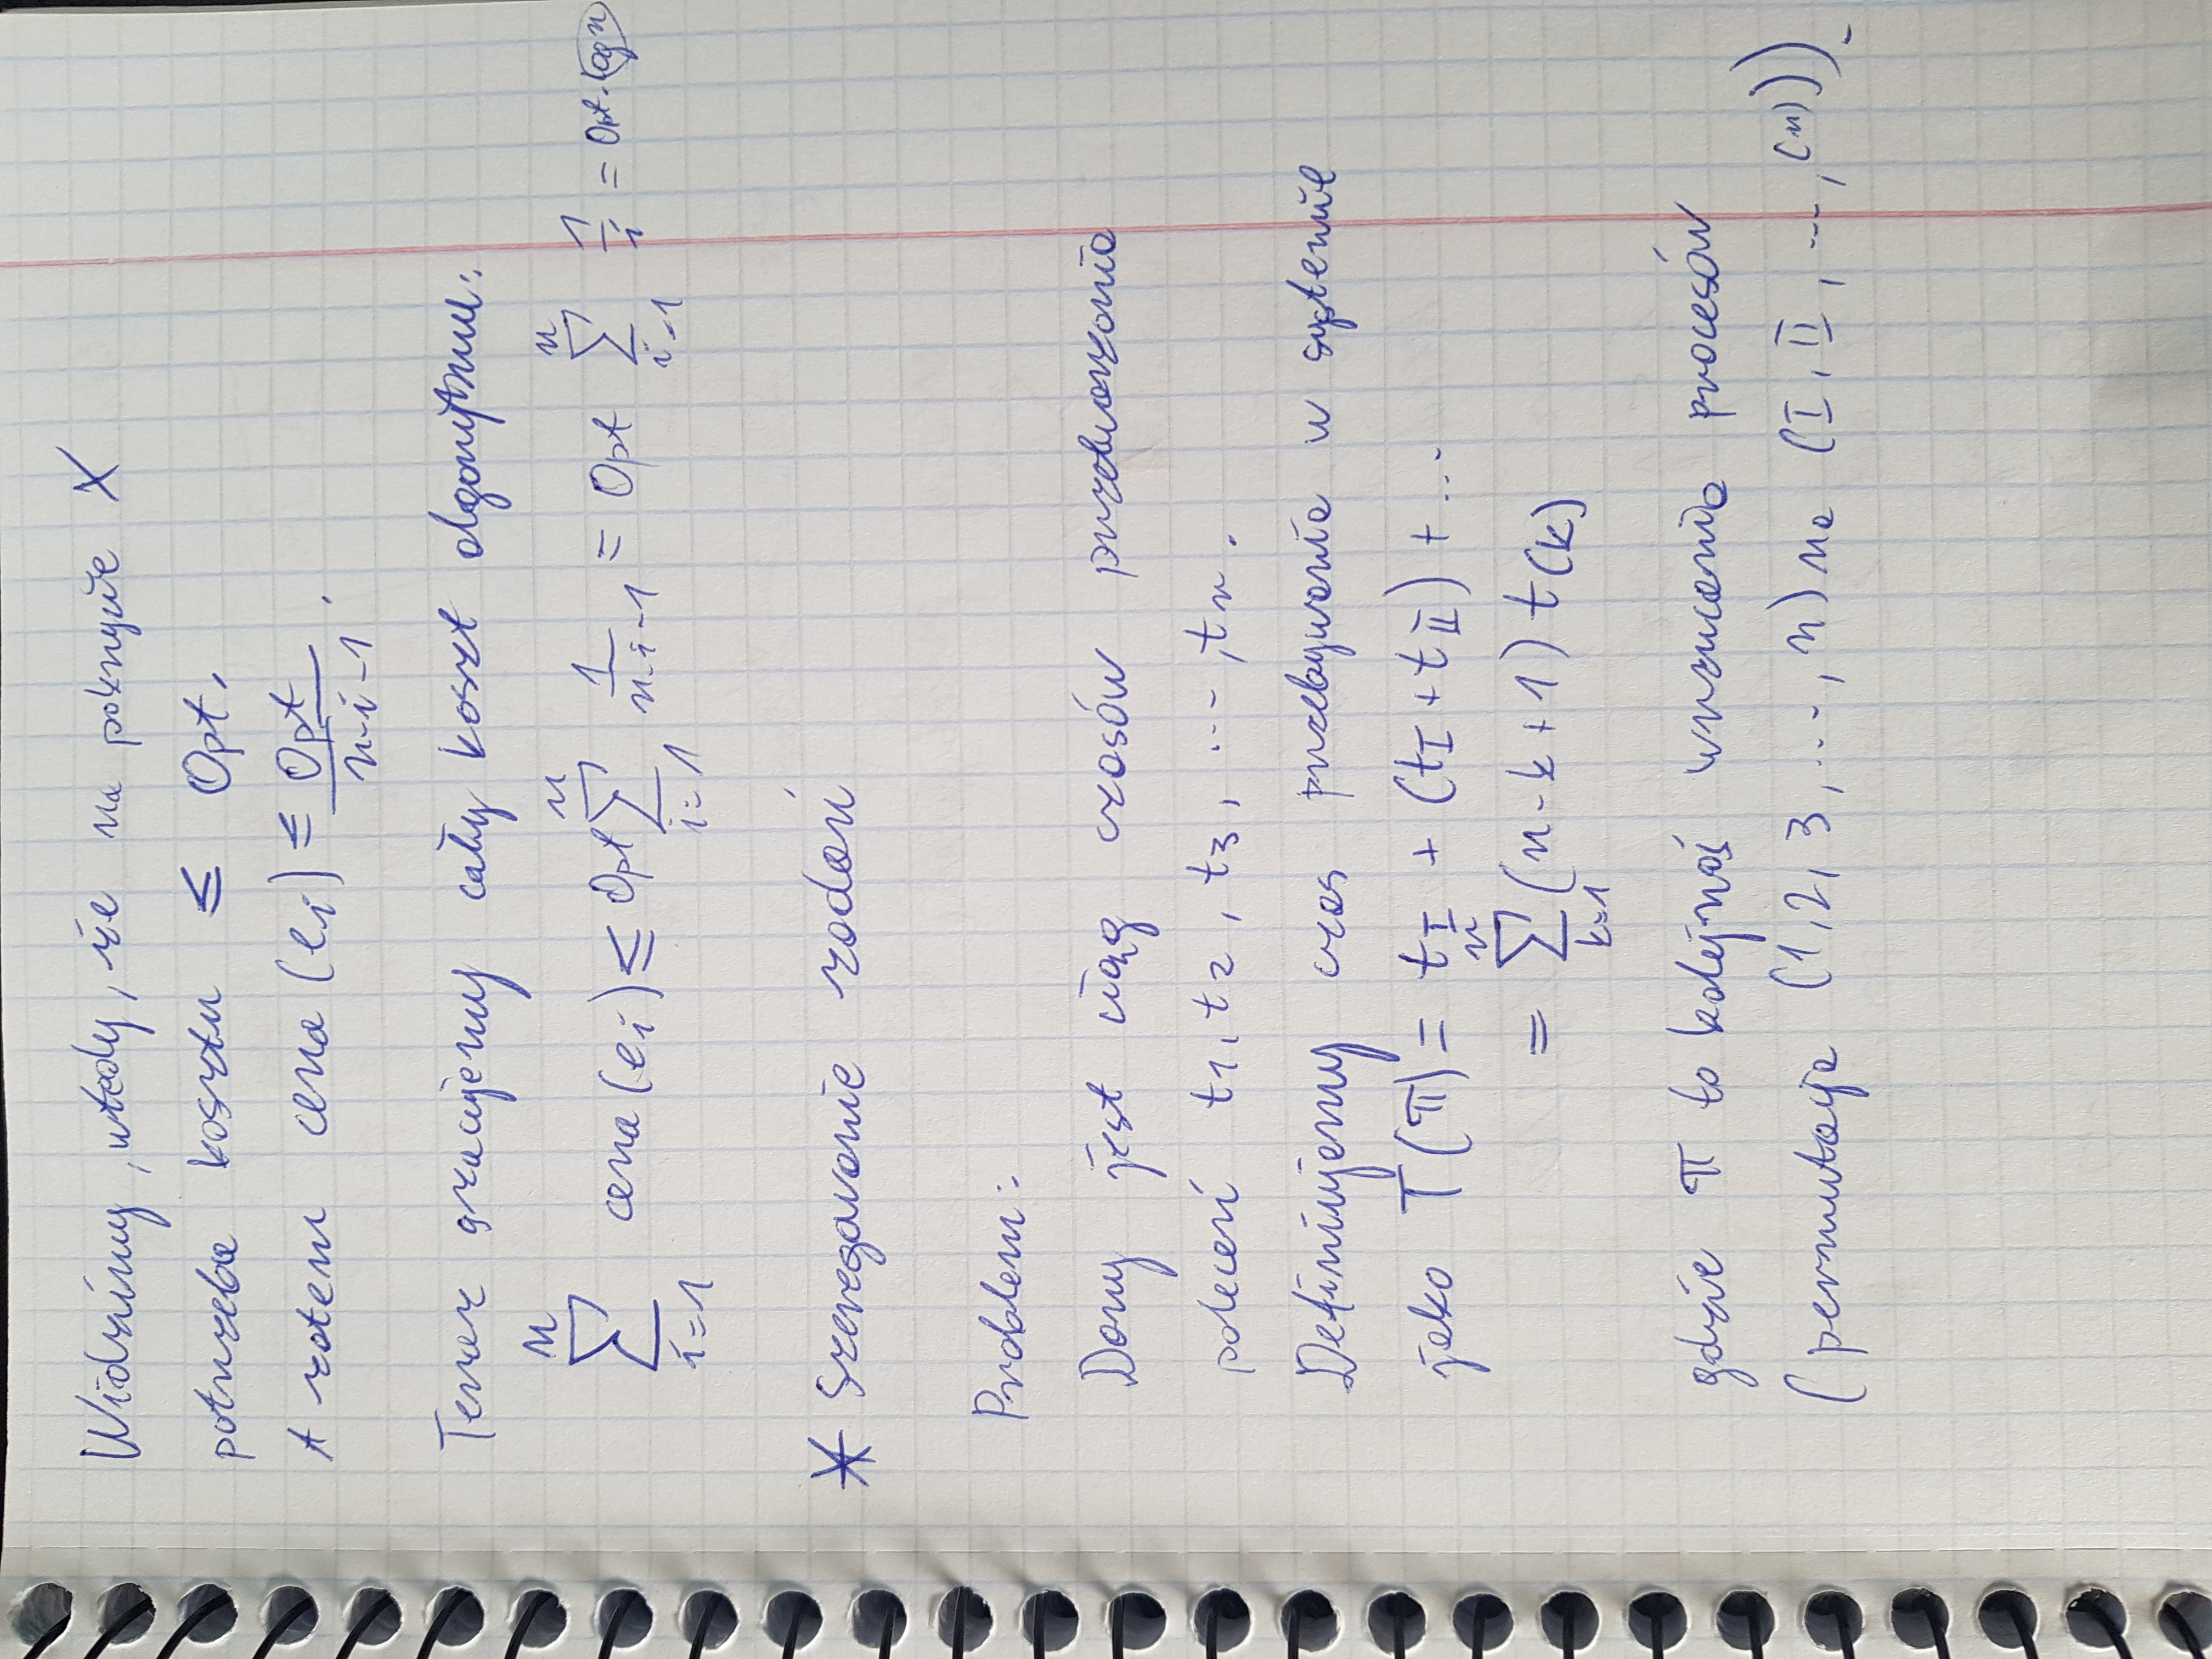 Widzimy, wtedy, że na pokrycie X
potrzeba kosztu ≤ Opt.
A zatem cena (e_i) ≤ Opt / (n-i-1).
Teraz szacujemy cały koszt algorytmu:
∑_{i=1}^{n} cena (e_i) ≤ Opt ∑_{i=1}^{n} 1/(n-i-1) = Opt ∑_{i=1}^{n} 1/i = Opt · log n
* Szeregowanie zadań
Problem:
Dany jest ciąg czasów przetwarzania
poleceń t_1, t_2, t_3, ..., t_n.
Definiujemy czas przebywania w systemie
jako T(π) = t_I + (t_I + t_II) + ...
= ∑_{k=1}^{n} (n-k+1) t_(k)
gdzie π to kolejnoś wrzucania procesów
(permutacja (1, 2, 3, ..., n) na (I, II, ..., (n))).